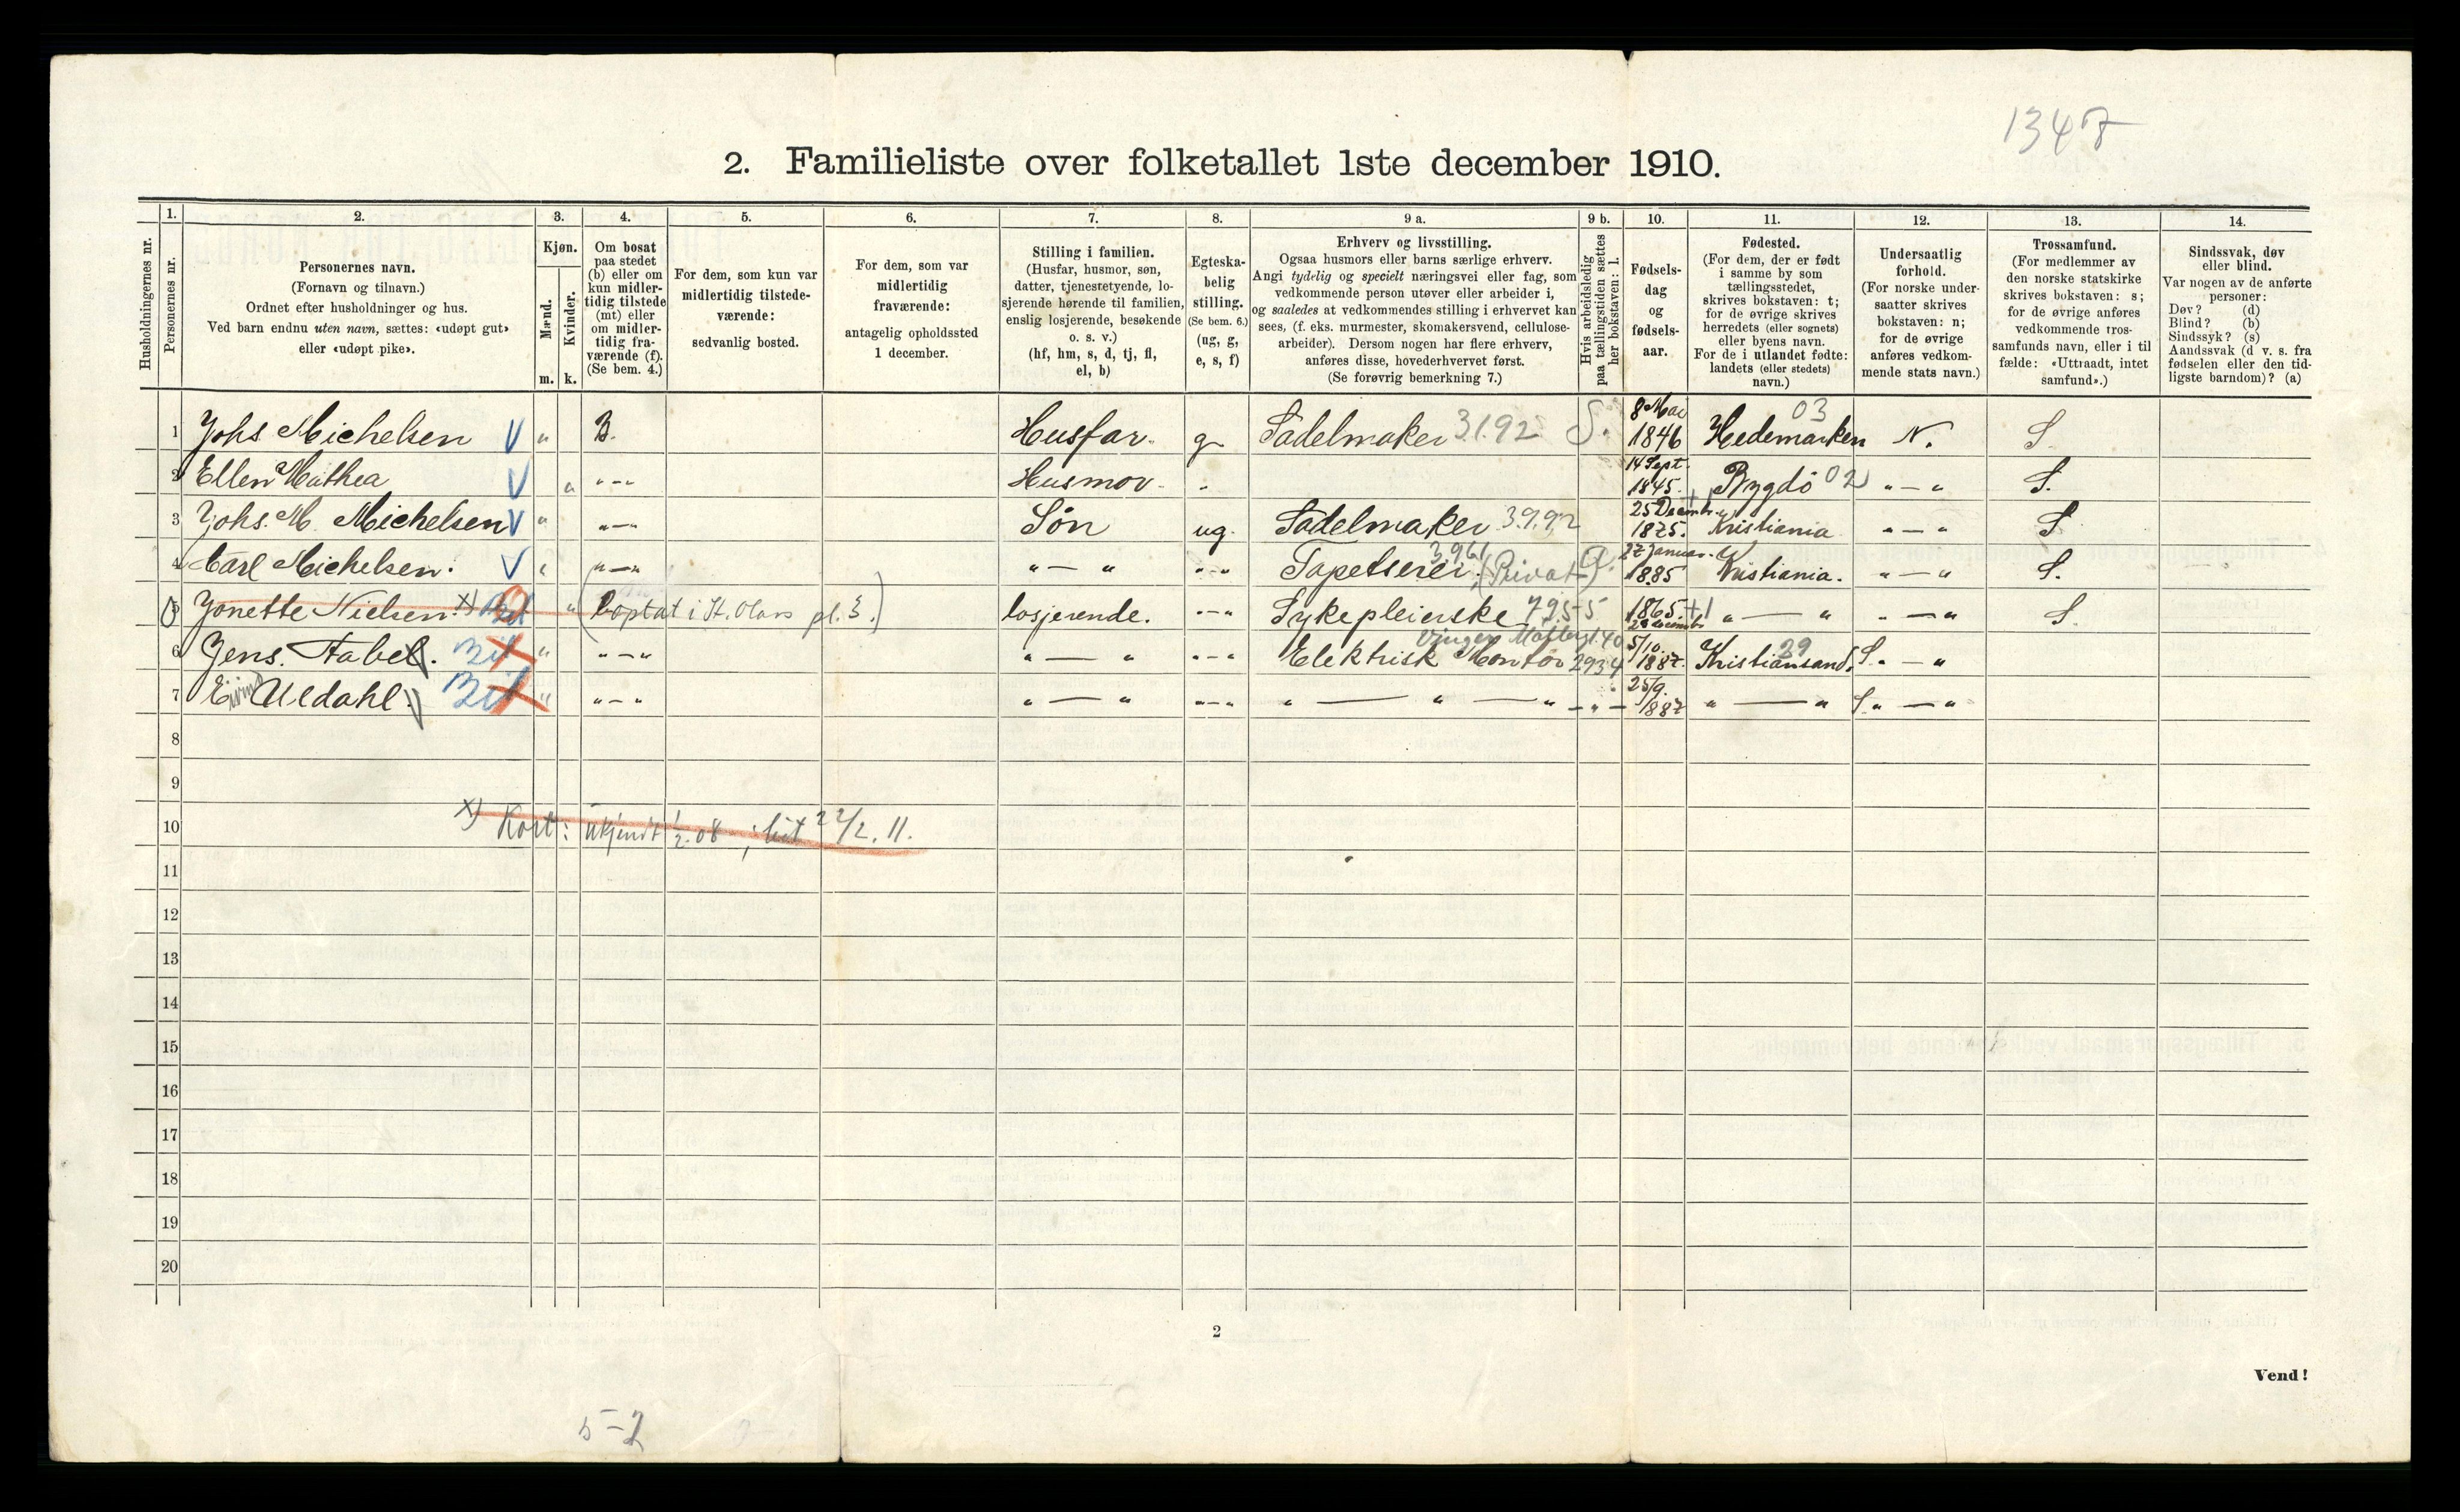 1347
2. Familieliste over folketallet 1ste december 1910.
Husholdningernes nr.
1.
Personernes nr.
2.
Personernes navn.
(Fornavn og tilnavn.)
Ordnet efter husholdninger og hus.
Ved barn endnu uten navn, sættes: «udøpt gut»
eller «udøpt pike».
3.
Kjøn.
Mænd.
Kvinder.
m. k.
4.
Om bosat
paa stedet
(b) eller om
kun midler-
tidig tilstede
(mt) eller
om midler-
tidig fra-
værende (f).
(Se bem. 4.)
5.
For dem, som kun var
midlertidig tilstede-
værende:
sedvanlig bosted.
6.
For dem, som var
midlertidig
fraværende:
antagelig opholdssted
1 december.
7.
Stilling i familien.
(Husfar, husmor, søn,
datter, tjenestetyende, lo-
sjerende hørende til familien,
enslig losjerende, besøkende
o. s. v.)
(hf, hm, s, d, tj, fl,
el, b)
8.
Egteska-
belig
stilling.
(Se bem. 6.)
(ug, g,
e, s, f)
9 a.
Erhverv og livsstilling.
Ogsaa husmors eller barns særlige erhverv.
Angi tydelig og specielt næringsvei eller fag, som
vedkommende person utøver eller arbeider i,
og saaledes at vedkommendes stilling i erhvervet kan
sees, (f. eks. murmester, skomakersvend, cellulose-
arbeider). Dersom nogen har flere erhverv,
anføres disse, hovederhvervet først.
(Se forøvrig bemerkning 7.)
9 b.
Hvis arbeidsledig
paa tællingstiden sættes
her bokstaven: l.
10.
Fødsels-
dag
og
fødsels-
aar.
11.
Fødested.
(For dem, der er født
i samme by som
tællingsstedet,
skrives bokstaven: t;
for de øvrige skrives
herredets (eller sognets)
eller byens navn.
For de i utlandet fødte:
landets (eller stedets)
navn.)
12.
Undersaatlig
forhold.
(For norske under-
saatter skrives
bokstaven: n;
for de øvrige
anføres vedkom-
mende stats navn.)
13.
Trossamfund.
(For medlemmer av
den norske statskirke
skrives bokstaven: s;
for de øvrige anføres
vedkommende tros-
samfunds navn, eller i til
fælde: «Uttraadt, intet
samfund».)
14.
Sindssvak, døv
eller blind.
Var nogen av de anførte
personer:
Døv? (d)
Blind? (b)
Sindssyk? (s)
Aandssvak (d v. s. fra
fødselen eller den tid-
ligste barndom)? (a)
1 Johs Michelsen V " B. Husfar. g Sadelmaker 3.1.92 S. 8 Mai 1846 Hedemarken 03 N. S
2 Ellen Mathea V " "-" Husmor. " 14 Sept. 1845. Bygdö 02 "-" S.
3 Johs. M. Michelsen V " "-" Sön ug. Sadelmaker 3.9.92 25 Decembr. 1875. Kristiania "-" S
4 Carl Michelsen. V " "-" "-" "-" Tapetserer. (Privat) 3.961 a. 27 Januar. 1885 Kristiania. "-" S.
5 Jonette Nielsen. x) " (Optat i St. Olavs pl. 3.) losjerende. "-" Sykepleierske 795-5 1865. 29 decembr. +1 "-" "-" S
6 Jens. Fabel. Bil " "-" "-" "-" Elektrisk Montör 2934 5/10. 1887. Kristiansand S. 29 "-"
7 Eivind Uldahl. Bil " "-" "-" "-" "-" "-" -"- 25/9. 1887 "-" S "-"
8
9
10 x) Kort: ukjendt 1/2.08 -; 22/2.11.
11
12
13
14
15
16
17
18
19
20
2
Vend!
5-2